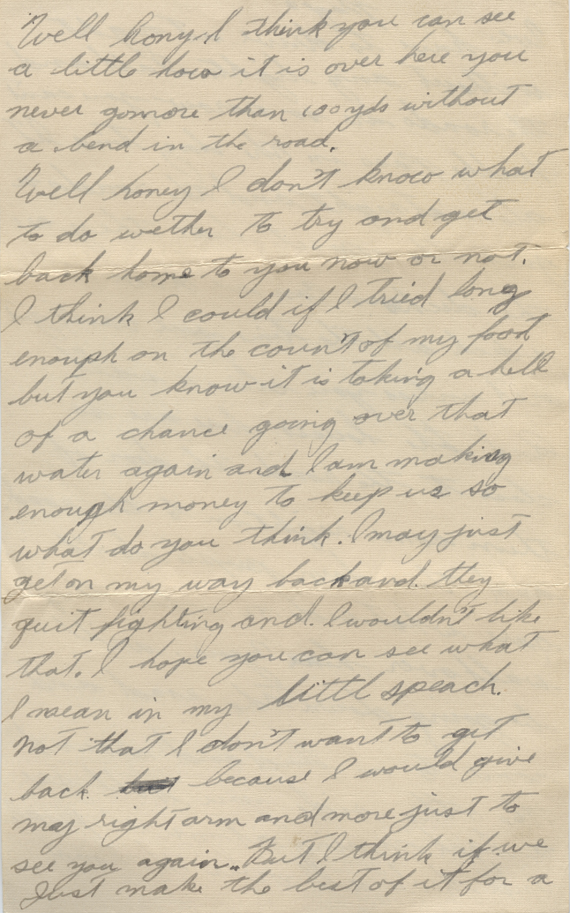 Well hony I think you can see
a little how it is over here you
never gomore than 100yds without
a bend in the road.
Well honey I don't know what
to do wether to try and get
back home to you now or not.
I think I could if I tried long
enough on the count of my foot
but you know it is taking a hell
of a chance going over that
water again and I am making
enough money to keep us so
what do you think. I may just
get on my way back and they
quit fighting and I wouldn't like
that. I hope you can see what
I mean in my littl speach.
not that I don't want to get
back because I would give
my right arm and more just to
see you again. But I think if we
Just make the best of it for a